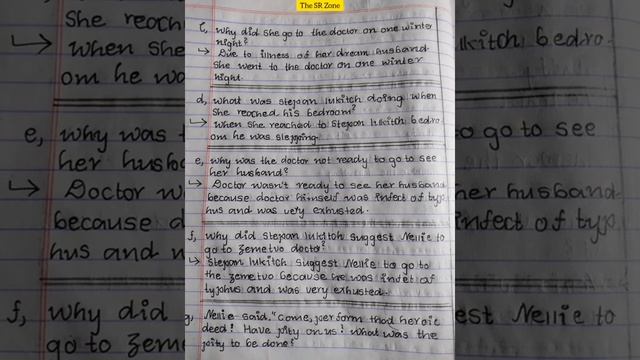 The SR Zone
c, Why did she go to the doctor on one winter
night?
↳ Due to illness of her dream husband
she went to the doctor on one winter
night.
d, what was stepan lukitch doing when
she reached his bedroom?
↳ When she reached to stepan lukitch bedro
om he was sleeping.
e, why was the doctor not ready to go to see
her husband?
↳ Doctor wasn't ready to see her husband
because doctor himself was infect of typ
hus and was very exhusted.
f, why did stepan lukitch suggest Nellie to
go to zemetvo doctor?
↳ stepan lukitch suggest Nellie to go to
the zemetvo because he was infet of
typhus and was very exhusted.
g, Nellie said, "come, perform that heroic
deed! Have pity on us! What was the
pity to be done?
She reached
↳ When she
om he wa
e, why was
her husb
↳ Doctor w
because d
hus and w
f, why did
go to zeme
lukitch bedro
to go to see
her husband
infect of typ
est Nellie to